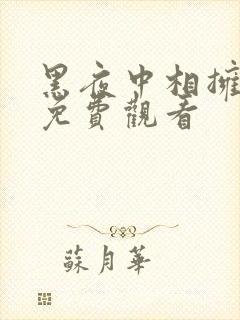 黑夜中相擁
免費觀看
蘇月華